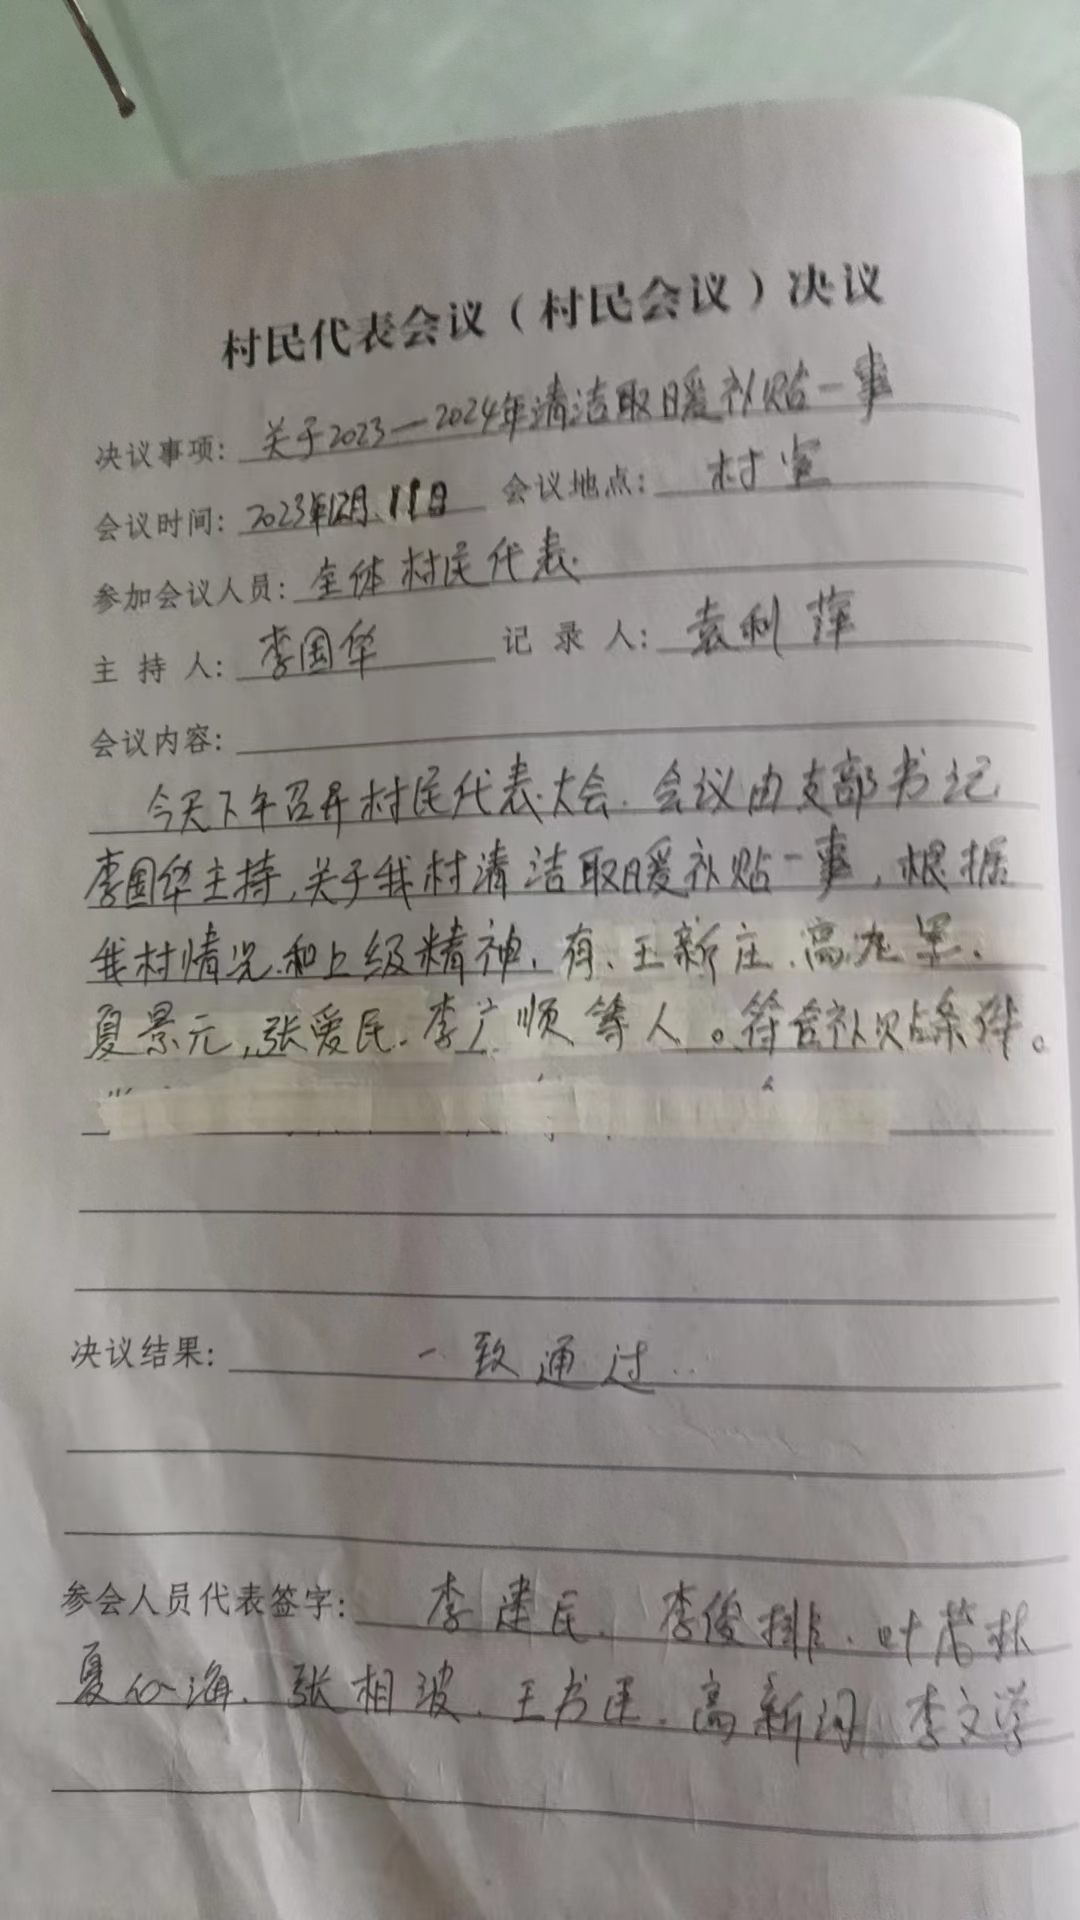 村民代表会议（村民会议）决议
决议事项：关于2023—2024年清洁取暖补贴一事
会议时间：2023年12月11日 会议地点：村室
参加会议人员：全体村民代表
主 持 人：李国华 记 录 人：袁利萍
会议内容：
今天下午召开村民代表大会、会议由支部书记
李国华主持，关于我村清洁取暖补贴一事，根据
我村情况和上级精神、有、王新庄、高九黑、
夏景元，张爱民、李广顺等人。符合补贴条件。
决议结果：一致通过
参会人员代表签字：李建民、李俊排、叶
海、张相波、王书、高新、李文学